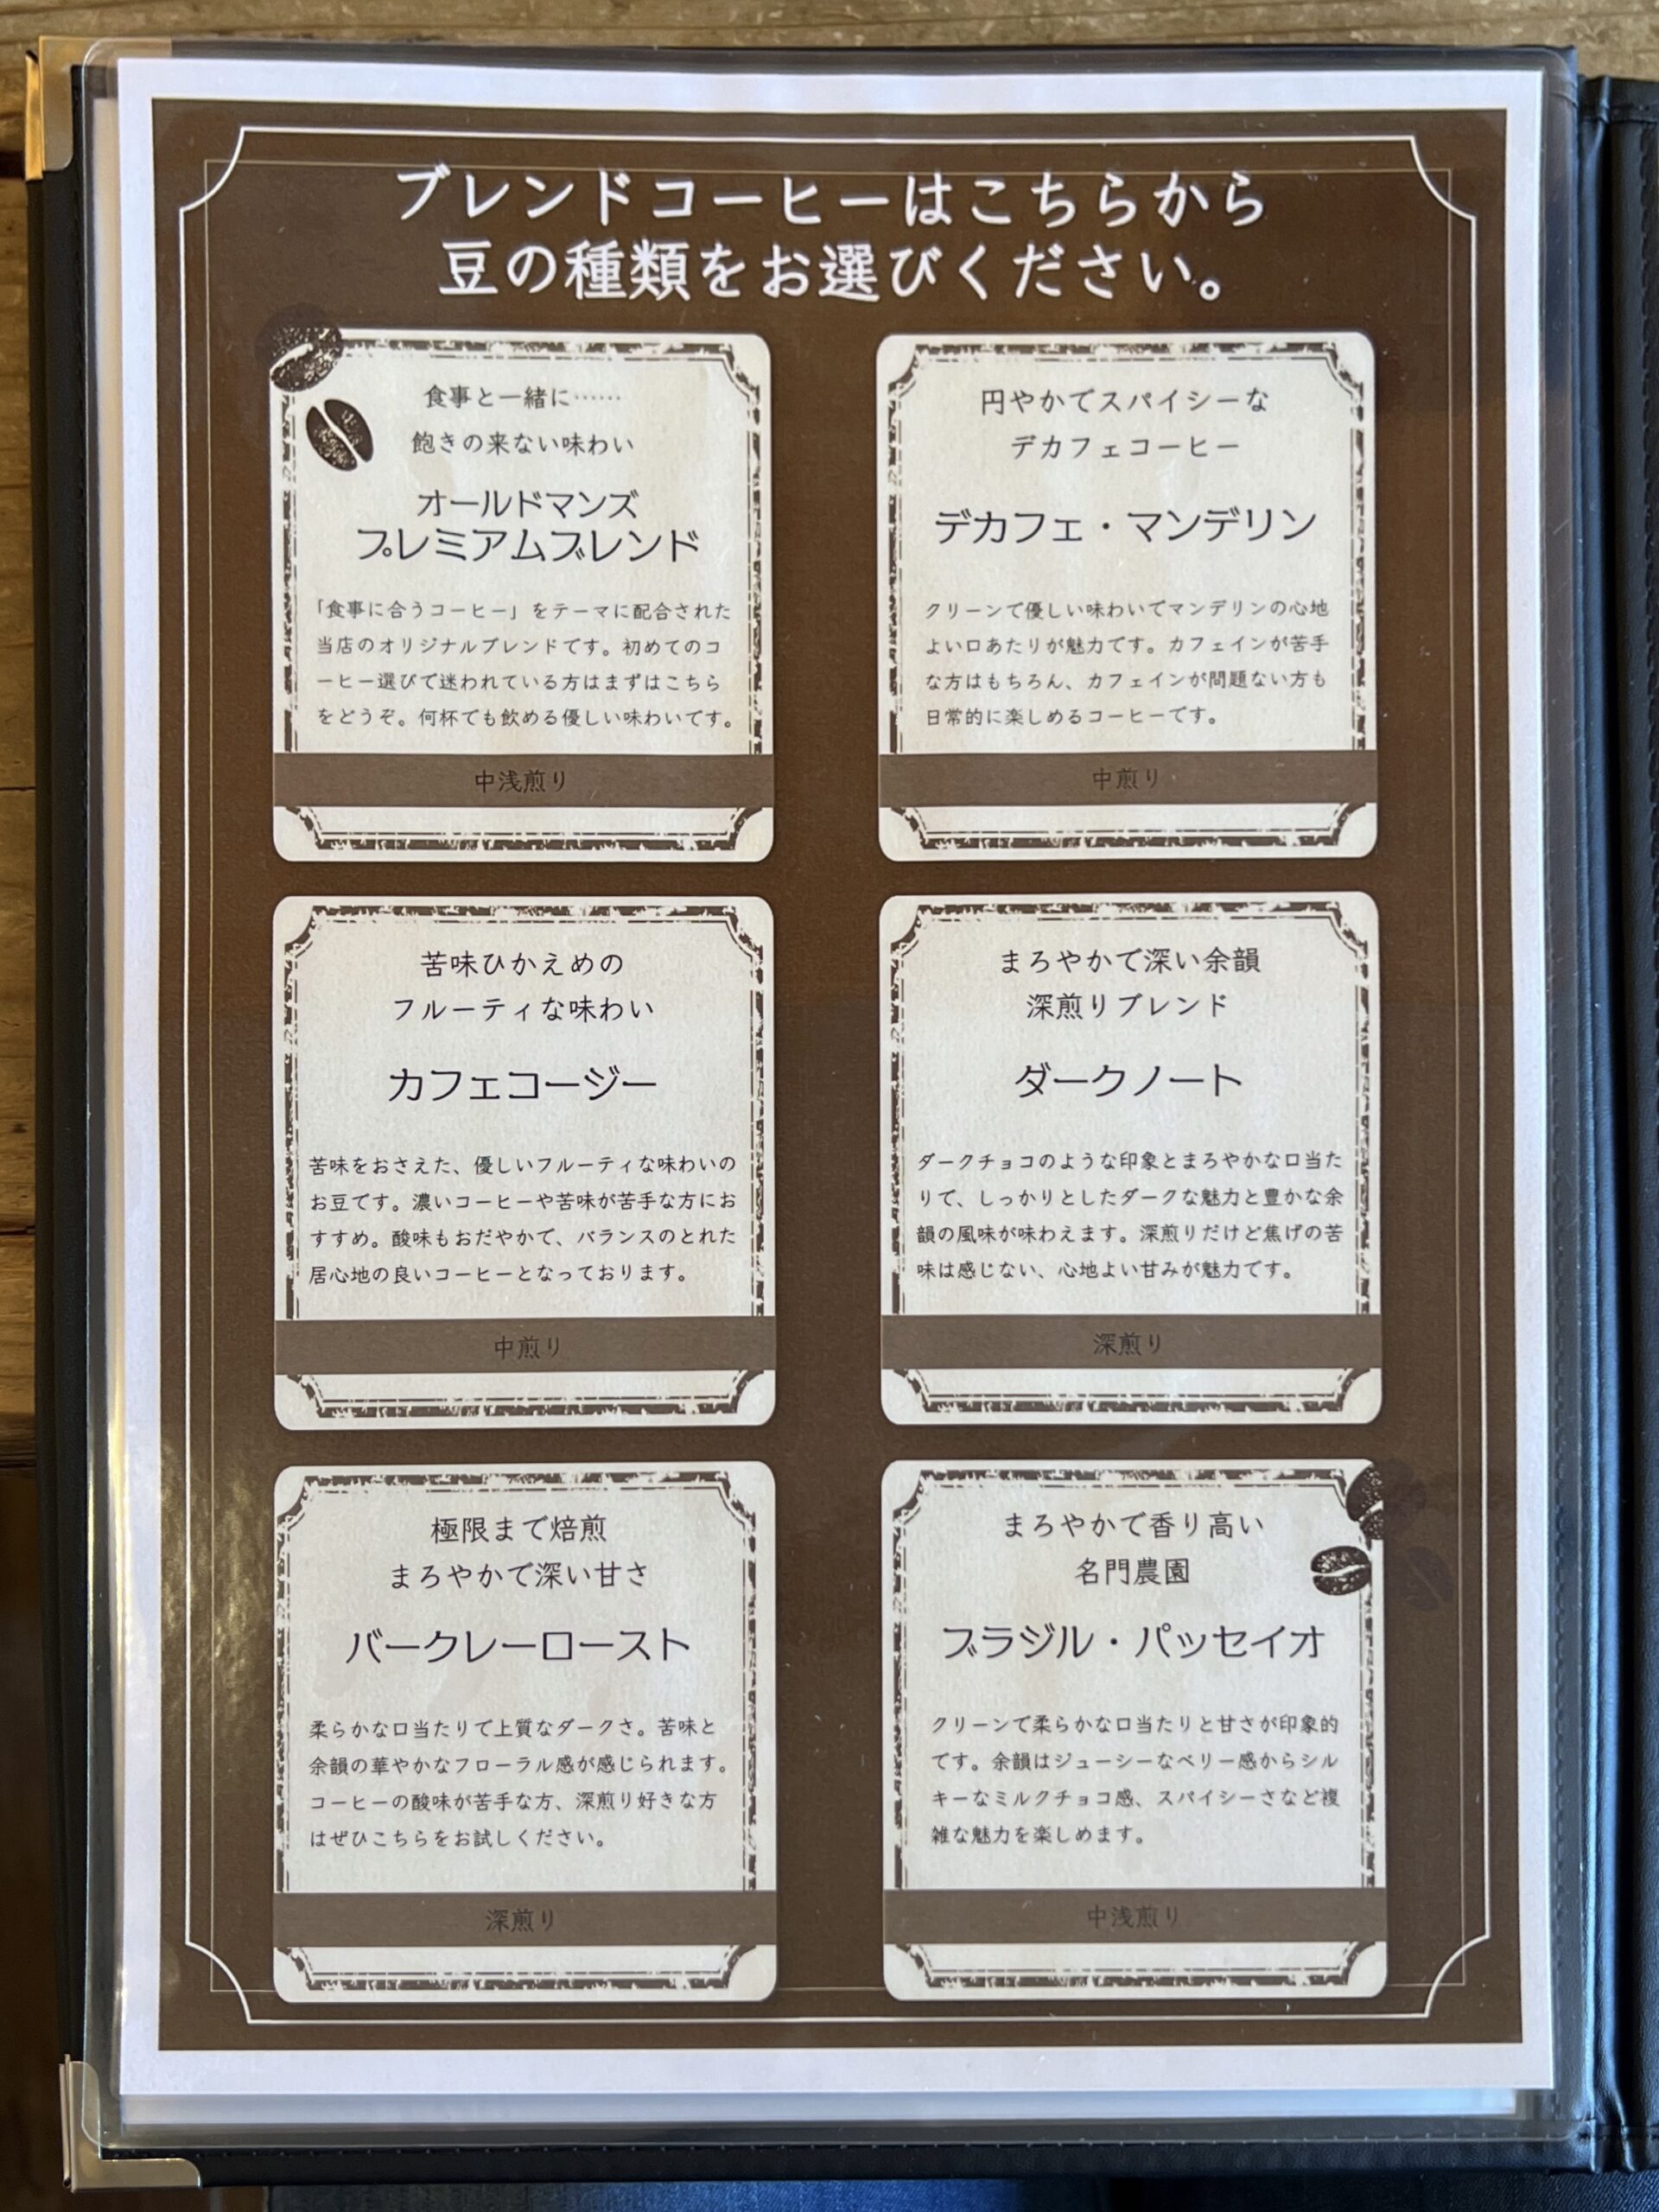 ブレンドコーヒーはこちらから
豆の種類をお選びください。
食事と一緒に……
飽きの来ない味わい
オールドマンズ
プレミアムブレンド
「食事に合うコーヒー」をテーマに配合された
当店のオリジナルブレンドです。初めてのコ
ーヒー選びで迷われている方はまずはこちら
をどうぞ。何杯でも飲める優しい味わいです。
中浅煎り
円やかでスパイシーな
デカフェコーヒー
デカフェ・マンデリン
クリーンで優しい味わいでマンデリンの心地
よい口あたりが魅力です。カフェインが苦手
な方はもちろん、カフェインが問題ない方も
日常的に楽しめるコーヒーです。
中煎り
苦味ひかえめの
フルーティな味わい
カフェコージー
苦味をおさえた、優しいフルーティな味わいの
お豆です。濃いコーヒーや苦味が苦手な方にお
すすめ。酸味もおだやかで、バランスのとれた
居心地の良いコーヒーとなっております。
中煎り
まろやかで深い余韻
深煎りブレンド
ダークノート
ダークチョコのような印象とまろやかな口当た
りで、しっかりとしたダークな魅力と豊かな余
韻の風味が味わえます。深煎りだけど焦げの苦
味は感じない、心地よい甘みが魅力です。
深煎り
極限まで焙煎
まろやかで深い甘さ
バークレーロースト
柔らかな口当たりで上質なダークさ。苦味と
余韻の華やかなフローラル感が感じられます。
コーヒーの酸味が苦手な方、深煎り好きな方
はぜひこちらをお試しください。
深煎り
まろやかで香り高い
名門農園
ブラジル・パッセイオ
クリーンで柔らかな口当たりと甘さが印象的
です。余韻はジューシーなベリー感からシル
キーなミルクチョコ感、スパイシーさなど複
雑な魅力を楽しめます。
中浅煎り